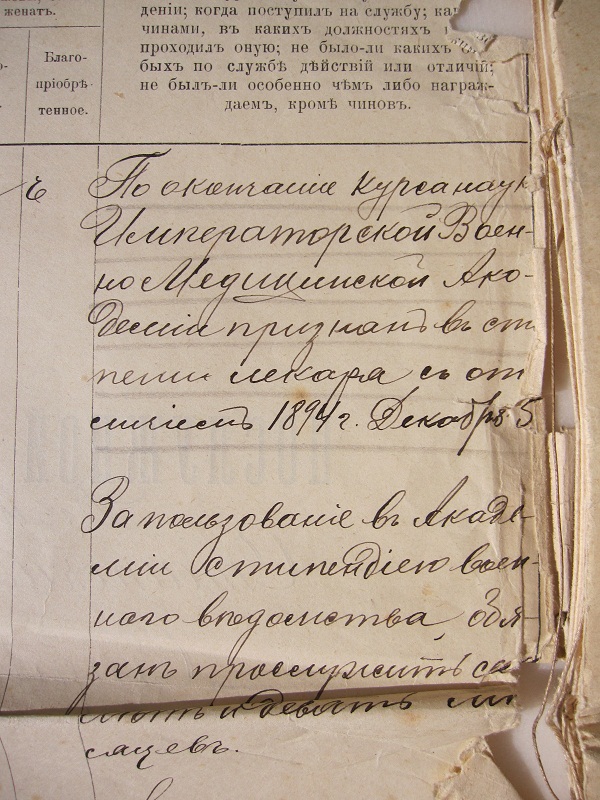 женатъ.
Благо-
пріобрѣ-
тенное.
деніи; когда поступилъ на службу;
чинами, въ какихъ должностяхъ
проходилъ оную; не было-ли какихъ
быхъ по службѣ дѣйствій или отличій;
не былъ-ли особенно чѣмъ либо награж-
даемъ, кромѣ чиновъ.
По окончаніи курса наук
Императорской Воен-
но Медицинской Ака-
деміи признанъ въ сте
пени лекаря съ от
личіемъ 1894 г. Декабря 5
За пользованіе въ Акаде-
міи стипендіею воен-
наго вѣдомства, обя-
занъ прослужить
лѣтъ и девять мѣ
сяцевъ.